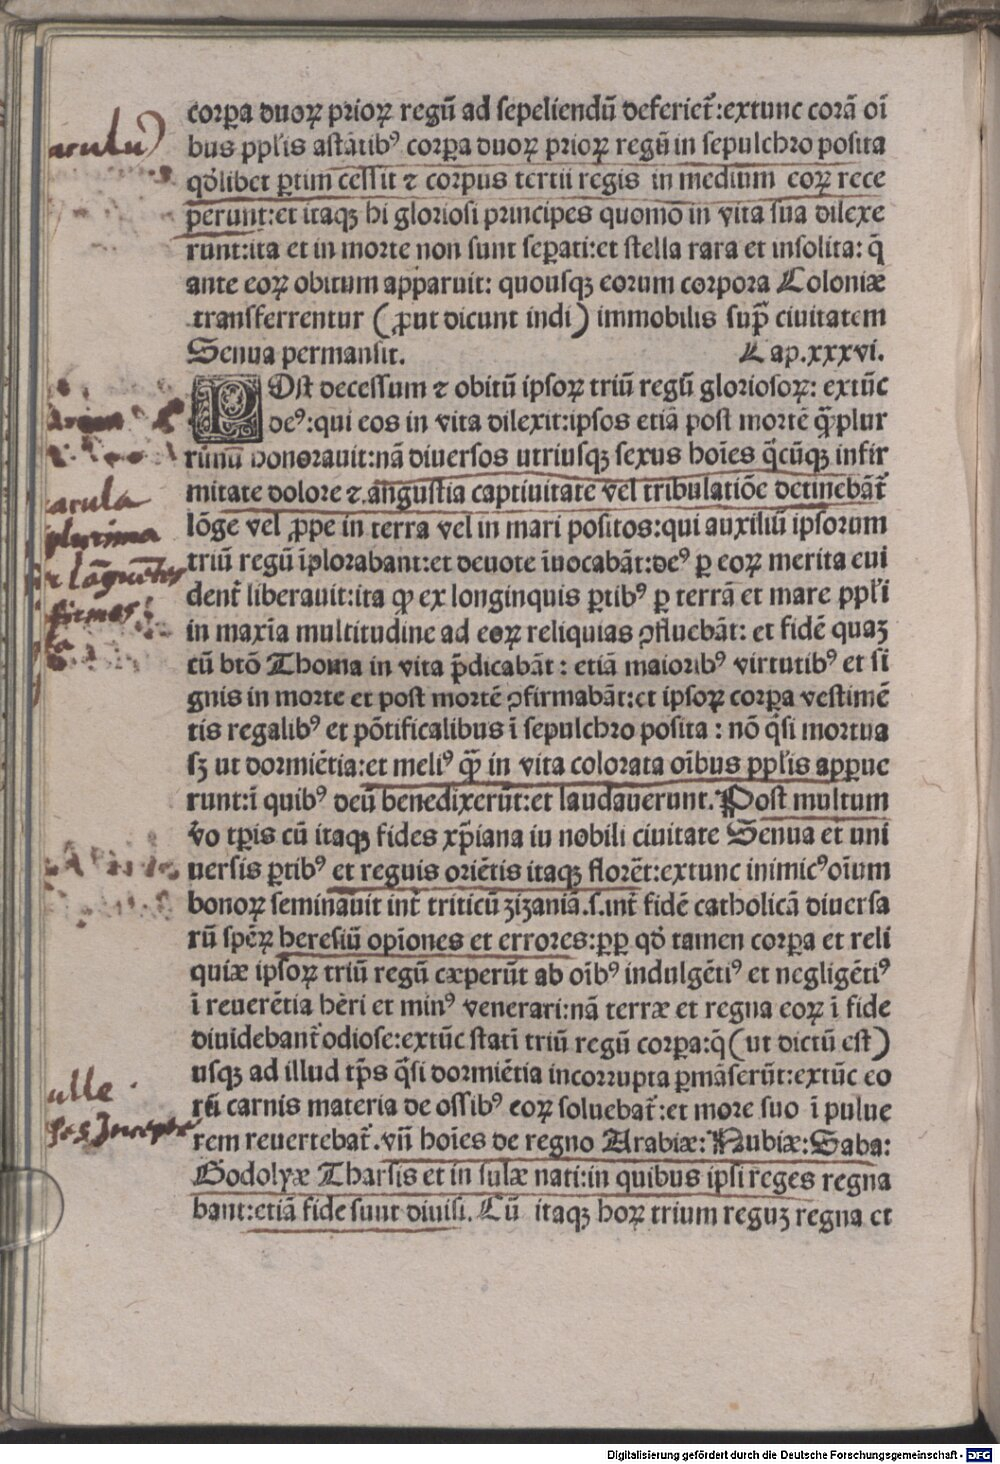 corꝑa duoꝝ prioꝝ regū ad sepeliendū deferiet᷑:extunc corā oī
bus ppl̓is astātibꝰ corꝑa duoꝝ prioꝝ regū in sepulchro posita
qd̓libet ꝑtim cessit ⁊ corpus tertii regis in medium eoꝝ rece
perunt:et itaqꝫ hi gloriosi principes quomō in vita sua dilexe
runt:ita et in morte non sunt seꝑati:et stella rara et insolita: q̄
ante eoꝝ obitum apparuit: quousqꝫ eorum corpora Coloniæ
transferrentur (ꝓut dicunt indi) immobilis sup̄ ciuitatem
Seuua permansit. Cap.xxxvi.
POst decessum ⁊ obitū ipsoꝝ triū regū gloriosoꝝ: extūc
deꝰ:qui eos in vita dilexit:ipsos etiā post mortē q̄plur
rimū honorauit:nā diuersos utriusqꝫ sexus hoīes q̄cūqꝫ infir
mitate dolore ⁊ angustia captiuitate vel tribulatiōe detinebāt᷑
lōge vel ꝓpe in terra vel in mari positos:qui auxiliū ipsorum
triū regū īplorabant:et deuote īuocabāt:deꝰ ꝑ eoꝝ merita eui
dent᷑ liberauit:ita ꝙ ex longinquis ꝑtibꝰ ꝑ terrā et mare ppl̓i
in maxīa multitudine ad eoꝝ reliquias ꝯfluebāt: et fidē quaꝫ
cū btō Thoma in vita p̄dicabāt: etiā maioribꝰ virtutibꝰ et si
gnis in morte et post mortē ꝯfirmabāt:et ipsoꝝ corꝑa vestimē
tis regalibꝰ et pōtificalibus ī sepulchro posita: nō q̄si mortua
sꝫ ut dormiētia:et meliꝰ q̄ in vita colorata oībus ppl̓is apꝑue
runt:ī quibꝰ deū benedixerūt:et laudauerunt.Post multum
v̓o tꝑis cū itaqꝫ fides xp̄iana iu nobili ciuitate Seuua et uni
uersis ꝑtibꝰ et reguis oriētis itaqꝫ florēt:extunc inimicꝰ oīum
bonoꝝ seminauit int᷑ triticū zizaniā.s.int᷑ fidē catholicā diuersa
rū spēꝝ heresiū opīones et errores:ꝑꝑ qd̓ tamen corꝑa et reli
quiæ ipsoꝝ triū regū cæperūt ab oībꝰ indulgētiꝰ et negligētiꝰ
ī reuerētia hēri et minꝰ venerari:nā terræ et regna eoꝝ ī fide
diuidebant᷑ odiose:extūc statī triū regū corꝑa:q̄ (ut dictū est)
usqꝫ ad illud tp̄s q̄si dormiētia incorrupta ꝑmāserūt:extūc eo
rū carnis materia de ossibꝰ eoꝝ soluebat᷑:et more suo ī pulue
rem reuertebat᷑.vñ hoīes de regno Arabiæ:Nubiæ:Saba:
Godolyæ Tharsis et in sulæ nati:in quibus ipsi reges regna
bant:etiā fide sunt diuisi.Cū itaqꝫ hoꝝ trium reguꝫ regna et
acula
plurima
ulle
Digitalisierung gefördert durch die Deutsche Forschungsgemeinschaft - DFG